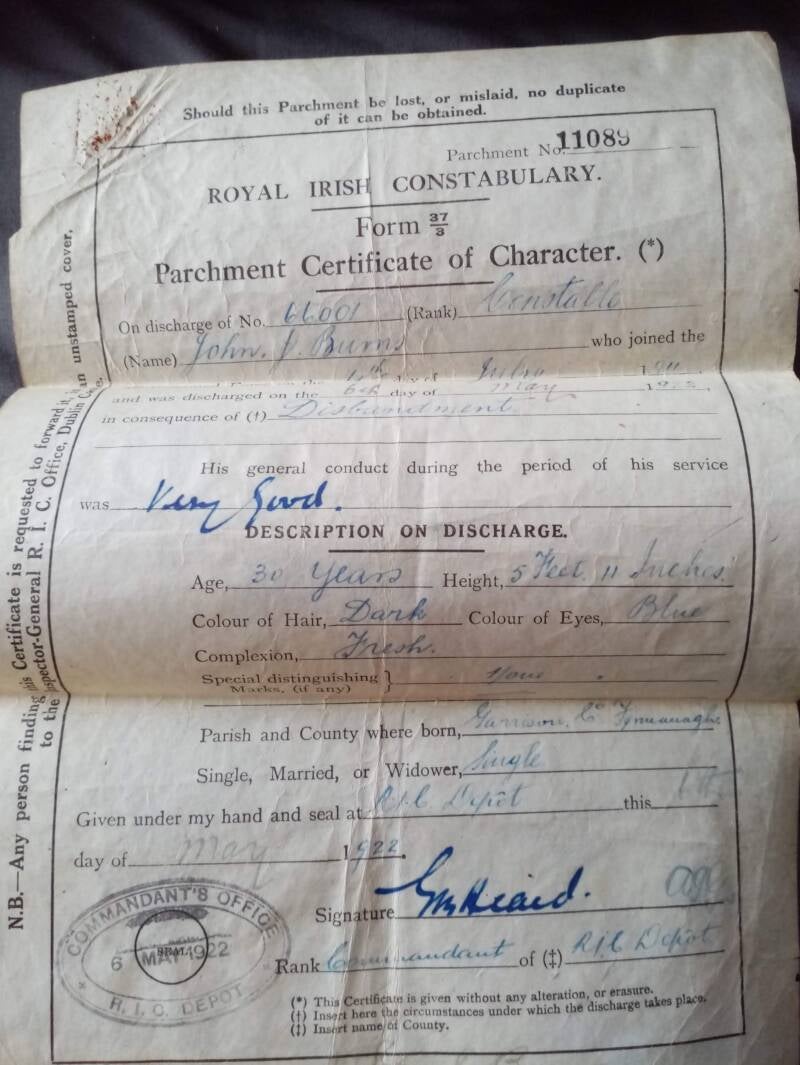 Should this Parchment be lost, or mislaid, no duplicate
of it can be obtained.
Parchment No. 11089
ROYAL IRISH CONSTABULARY.
Form 37/3
Parchment Certificate of Character. (*)
On discharge of No. 66001 (Rank) Constable
(Name) John. J. Burns who joined the
day of July
and was discharged on the 6th day of May
in consequence of (†) Disbandment.
His general conduct during the period of his service
was Very Good.
DESCRIPTION ON DISCHARGE.
Age, 30 Years Height, 5 Feet. 11 Inches.
Colour of Hair, Dark Colour of Eyes, Blue
Complexion, Fresh.
Special distinguishing } None.
Marks. (if any)
Parish and County where born, Garrison. Co Fermanagh.
Single, Married, or Widower, Single
Given under my hand and seal at R.I.C Depôt this
day of May 1922.
Signature
Rank Commandant of (‡) R.I.C Depôt
COMMANDANT'S OFFICE
6 MAY 1922
SEAL
R. I. C. DEPOT
(*) This Certificate is given without any alteration, or erasure.
(†) Insert here the circumstances under which the discharge takes place.
(‡) Insert name of County.
N.B.—Any person finding this Certificate is requested to forward it, in an unstamped cover,
to the Inspector-General R. I. C. Office, Dublin Castle.